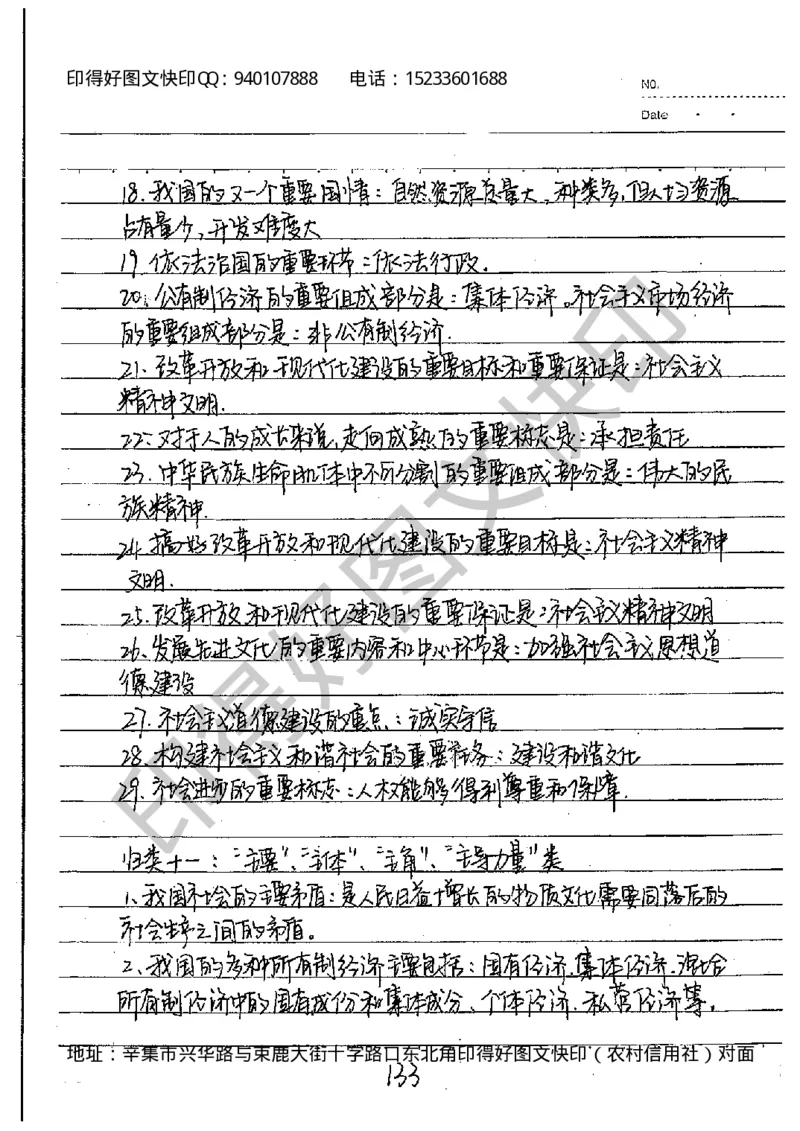 印得好图文快印QQ：940107888 电话：15233601688
No.
Date
18.我国的又一个重要国情：自然资源总量大，种类多，但人均资源
占有量少，开发难度大
19.依法治国的重要环节：依法行政.
20.公有制经济的重要组成部分是：集体经济。社会主义市场经济
的重要组成部分是：非公有制经济.
21.改革开放和现代化建设的重要目标和重要保证是：社会主义
精神文明.
22.对于人的成长来说，走向成熟的重要标志是：承担责任
23.中华民族生命肌体中不可分割的重要组成部分是：伟大的民
族精神.
24.搞好改革开放和现代化建设的重要目标是：社会主义精神
文明.
25.改革开放和现代化建设的重要保证是：社会主义精神文明
26.发展先进文化的重要内容和中心环节是：加强社会主义思想道
德建设
27.社会主义道德建设的重点：诚实守信
28.构建社会主义和谐社会的重要任务：建设和谐文化
29.社会进步的重要标志：人权能够得到尊重和保障.
归类十一："主要"、"主体"、"主角"、"主导力量"类
1、我国社会的主要矛盾：是人民日益增长的物质文化需要同落后的
社会生产之间的矛盾。
2、我国的多种所有制经济主要包括：国有经济、集体经济、混合
所有制经济中的国有成份和集体成分、个体经济、私营经济等。
地址：辛集市兴华路与束鹿大街十字路口东北角印得好图文快印（农村信用社）对面
133
印得好图文快印